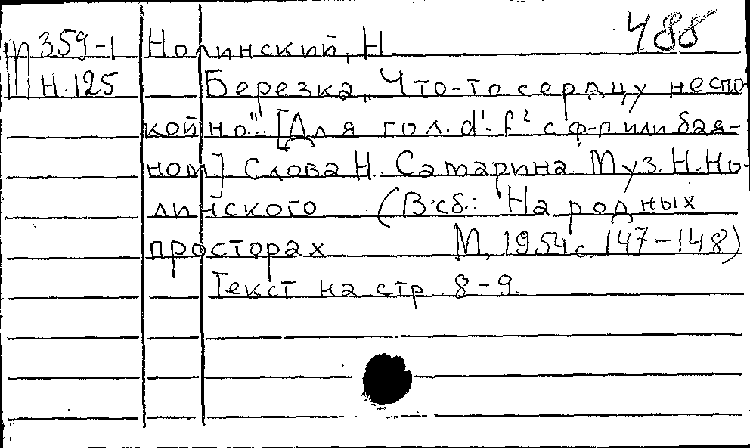 488
М 359-1 Нолинский, Н.
Н.125 Березка, "Что-то сердцу неспо-
койно". [Для гол. d'-f² с ф-п или бая-
ном] Слова Н. Сатарина Муз. Н. Но-
линского (В сб.: На родных
просторах М, 1954 с 147-148)
Текст на стр 8-9.